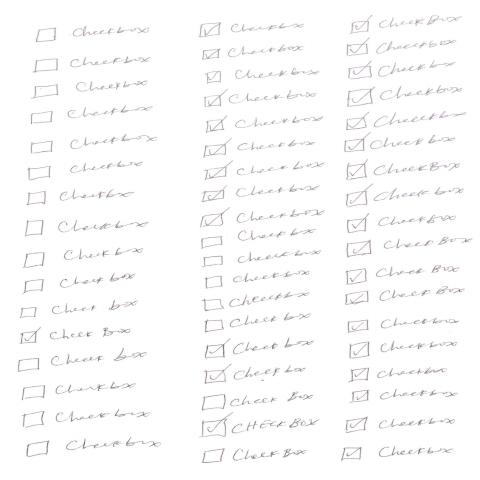 Checkbox
Checkbox
Checkbox
Checkbox
Checkbox
Checkbox
Checkbox
Checkbox
Check box
Check box
Check box
Check Box
Check box
Checkbox
Checkbox
Checkbox
Checkbox
Checkbox
Checkbox
Checkbox
Checkbox
Check box
Check box
Check box
Checkbox
Check box
Check box
Checkbox
Checkbox
Check box
Check box
Check box
Check Box
CHECKBOX
Check Box
Check Box
Checkbox
Checkbox
Checkbox
Checkbox
Check box
CheckBox
Check box
CheckBox
Check Box
Check Box
Check Box
Checkbox
Checkbox
Checkbox
Checkbox
Checkbox
Checkbox